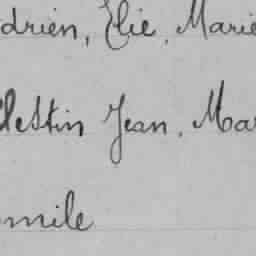 drien, Elie, Marie
lestin Jean, Mar
mile